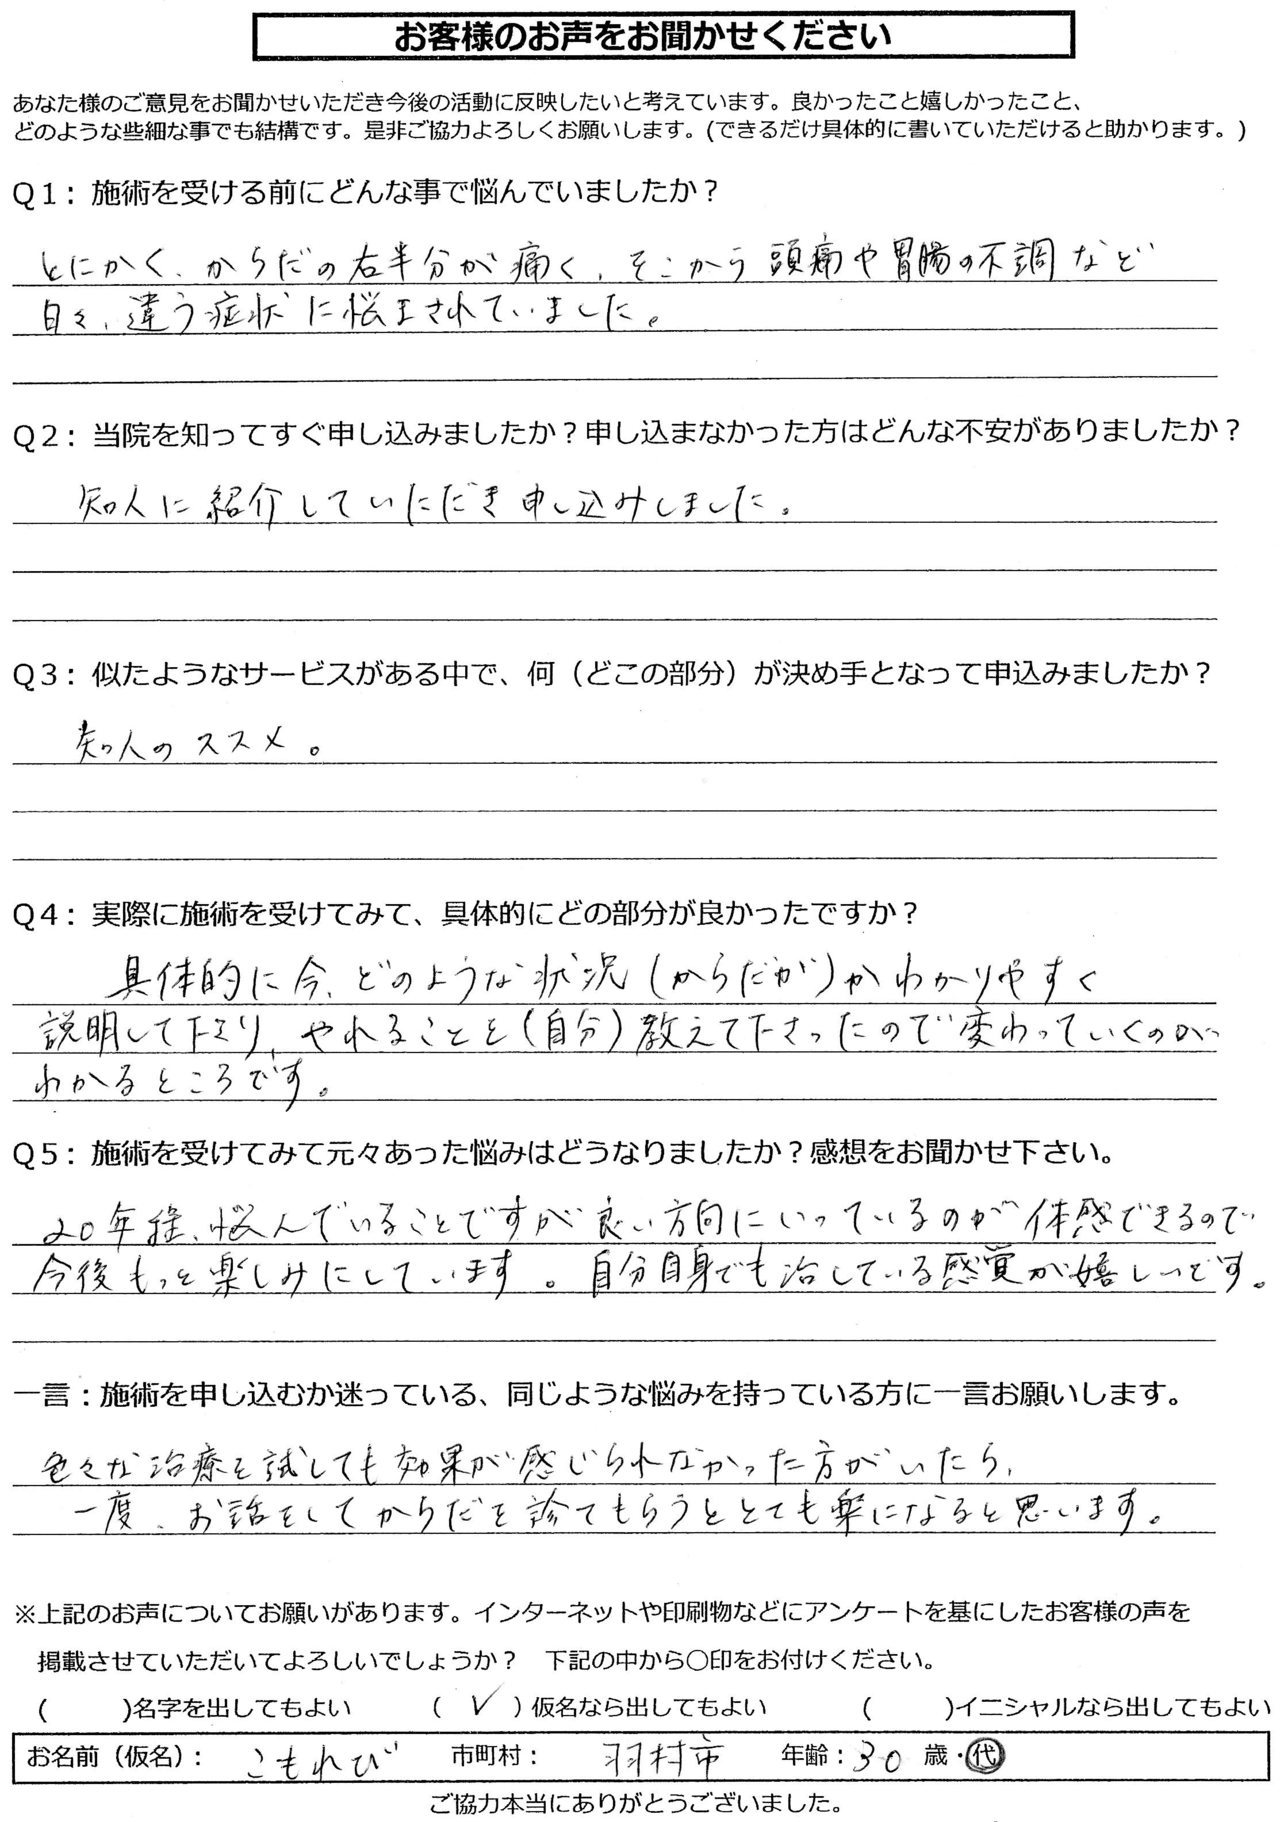 お客様のお声をお聞かせください
あなた様のご意見をお聞かせいただき今後の活動に反映したいと考えています。良かったこと嬉しかったこと、
どのような些細な事でも結構です。是非ご協力よろしくお願いします。(できるだけ具体的に書いていただけると助かります。)
Q1：施術を受ける前にどんな事で悩んでいましたか？
とにかく、からだの右半分が痛く、そこから頭痛や胃腸の不調など
日々、違う症状に悩まされていました。
Q2：当院を知ってすぐ申し込みましたか？申し込まなかった方はどんな不安がありましたか？
知人に紹介していただき申し込みしました。
Q3：似たようなサービスがある中で、何（どこの部分）が決め手となって申込みましたか？
知人のススメ。
Q4：実際に施術を受けてみて、具体的にどの部分が良かったですか？
具体的に今、どのような状況(からだが)かわかりやすく
説明して下さり、やれることを(自分)教えて下さったので変わっていくのが
わかるところです。
Q5：施術を受けてみて元々あった悩みはどうなりましたか？感想をお聞かせ下さい。
20年程、悩んでいることですが良い方向にいっているのが体感できるので
今後もっと楽しみにしています。自分自身でも治している感覚が嬉しいです。
一言：施術を申し込むか迷っている、同じような悩みを持っている方に一言お願いします。
色々な治療を試しても効果が感じられなかった方がいたら、
一度、お話をしてからだを診てもらうととても楽になると思います。
※上記のお声についてお願いがあります。インターネットや印刷物などにアンケートを基にしたお客様の声を
掲載させていただいてよろしいでしょうか？　下記の中から〇印をお付けください。
(　　)名字を出してもよい　　(　✓　)仮名なら出してもよい　　(　　)イニシャルなら出してもよい
お名前（仮名）：こもれび　市町村：羽村市　年齢：30歳・代
ご協力本当にありがとうございました。